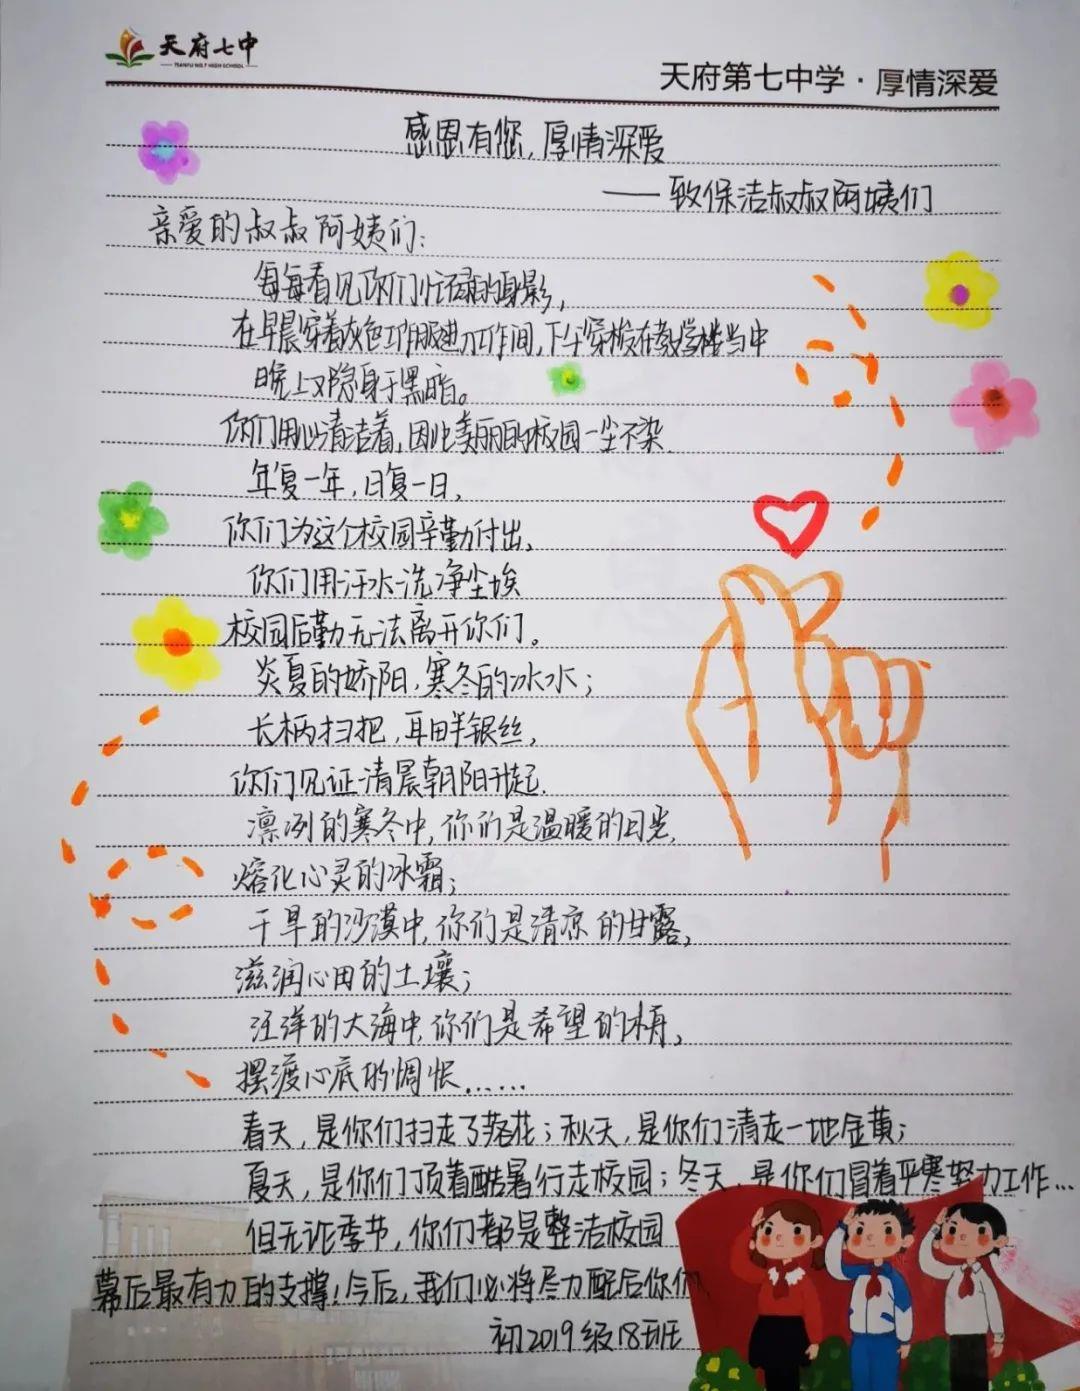 天府七中
TIANFU NO.7 HIGH SCHOOL
天府第七中学·厚情深爱
感恩有您,厚情深爱
——致保洁叔叔阿姨们
亲爱的叔叔阿姨们:
每每看见你们忙碌的身影,
在早晨穿着灰色工作服进入工作间,下午穿梭在教学楼当中
晚上又隐身于黑暗。
你们用心清洁着,因此美丽的校园一尘不染.
年复一年,日复一日,
你们为这个校园辛勤付出,
你们用汗水洗净尘埃
校园后勤无法离开你们。
炎夏的娇阳,寒冬的冰水;
长柄扫把,耳畔银丝,
你们见证清晨朝阳升起.
凛冽的寒冬中,你们是温暖的日光,
熔化心灵的冰霜;
干旱的沙漠中,你们是清凉的甘露,
滋润心田的土壤;
汪洋的大海中,你们是希望的
摆渡心底的惆怅......
春天,是你们扫走了落花;秋天,是你们清走一地金黄;
夏天,是你们顶着酷暑行走校园;冬天,是你们冒着严寒努力工作...
但无论季节,你们都是整洁校园
幕后最有力的支撑,今后,我们必将尽力配合你们
初2019级18班